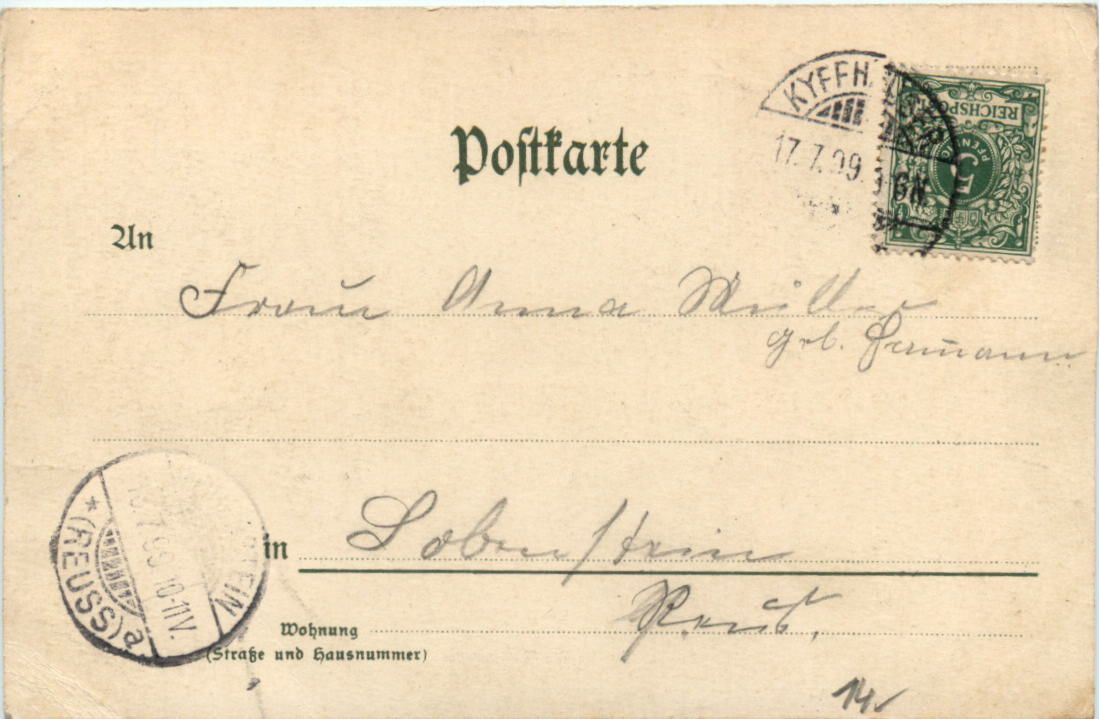 KYFFHÄUSER
17. 7. 99
REICHSPOST
5
PFENNIG
Postkarte
An
Frau Anna Müller
geb.
in
Lobenstein
Reuß.
STEIN
7 99 10-11V.
* (REUSS) a
Wohnung
(Straße und Hausnummer)
14